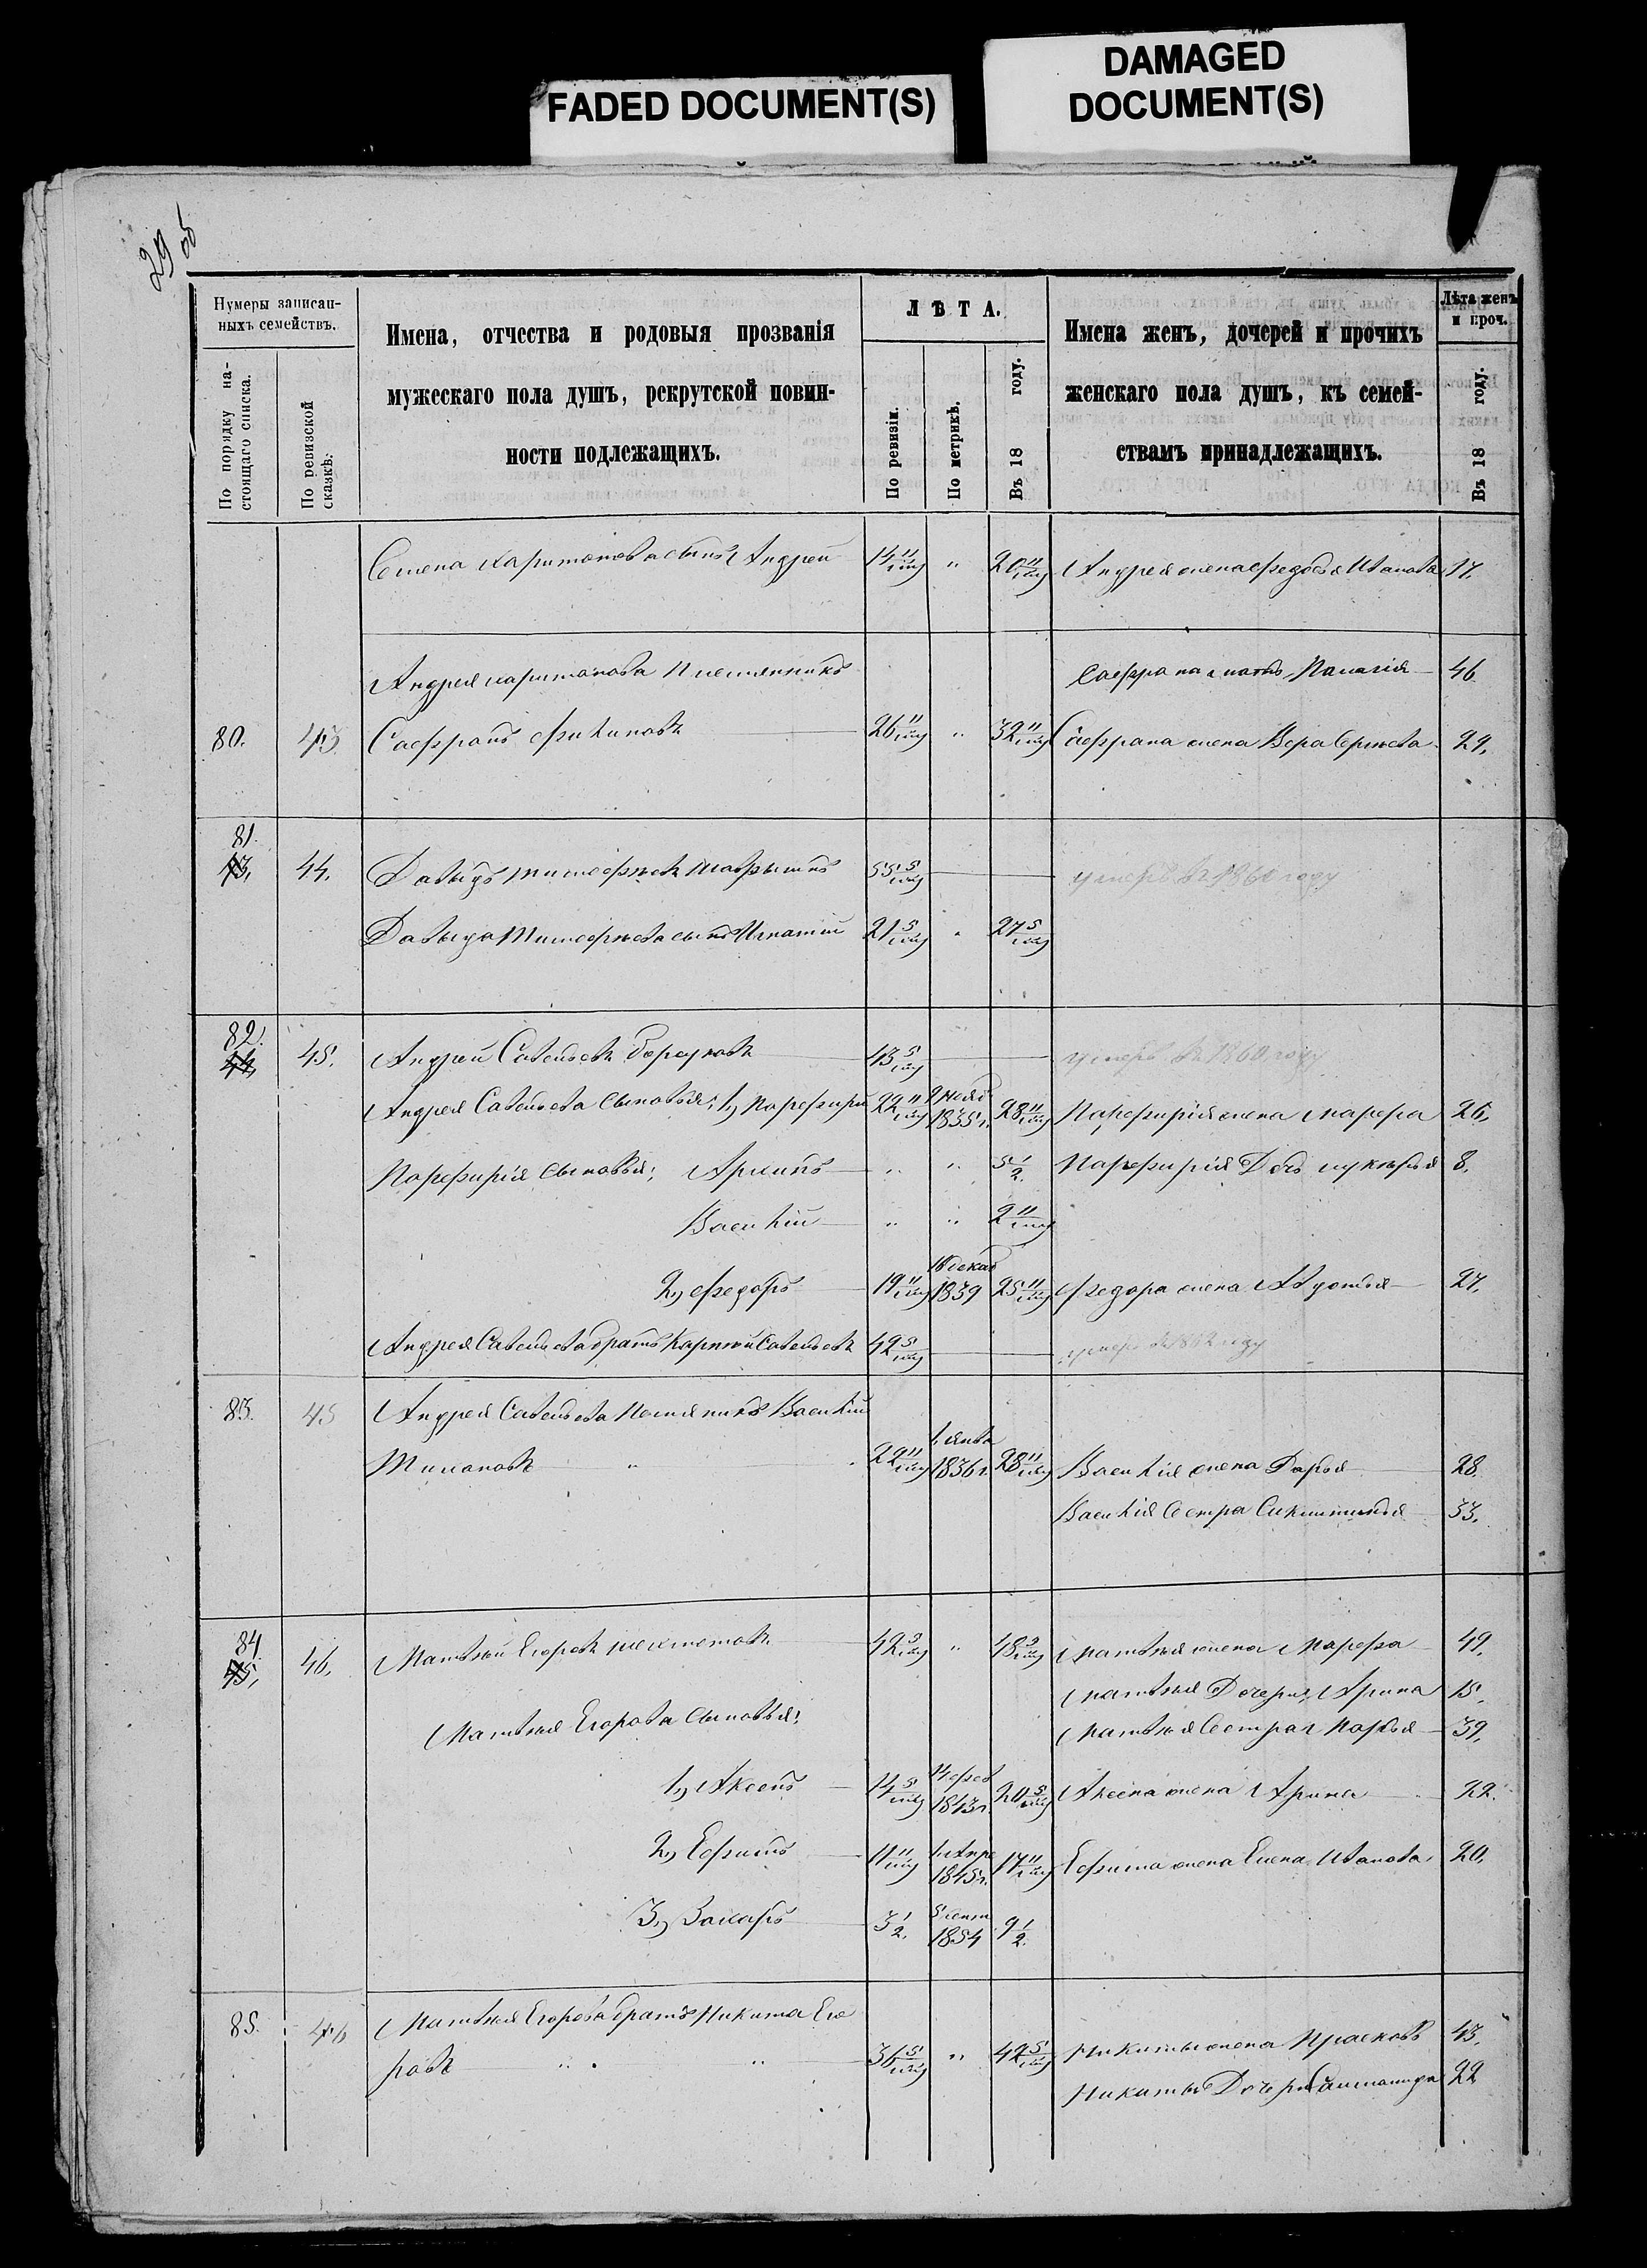 FADED DOCUMENT(S)
DAMAGED
DOCUMENT(S)
29 об
Нумеры записан-
ныхъ семействъ.
По порядку на-
стоящаго списка.
По ревизской
сказкѣ.
Имена, отчества и родовыя прозванія
мужескаго пола душъ, рекрутской повин-
ности подлежащихъ.
ЛѢТА.
По ревизіи.
По метрикѣ.
Въ 18 году.
Имена женъ, дочерей и прочихъ
женскаго пола душъ, къ семей-
ствамъ принадлежащихъ.
Лѣта женъ
и проч.
Въ 18 году.
Семена Харитонова сынъ Андрей 14 11/мц " 20 11/мц Андрея жена Федосья Иванова 17.
Андрея Харитонова Племянникъ Сафрона мать Палагія 46
80. 43 Сафронъ Филиповъ 26 11/мц " 32 11/мц Сафрона жена Вера 29.
81.
43. 44. Давыдъ Тимофѣевъ 55 5/мц умеръ въ 1860 году
Давыда Тимофѣева сынъ Игнатий 21 5/мц " 27 5/мц
82.
44. 45. Андрей Савельевъ 43 5/мц умеръ въ 1860 году
Андрея Савельева сыновья: 1, Порфирий 22 11/мц 9 нояб 1835 г. 28 11/мц Порфирія жена Марфа 26.
Порфирія сыновья: Архипъ " " 5 1/2. Порфирія Дочь Лукерья 8.
Василий " " 2 11/мц
2, Федоръ 19 11/мц декаб 1839 25 11/мц Федора жена Авдотья 27.
Андрея Савельева братъ Карпъ Савельевъ 42 5/мц умеръ въ 1862 году
83. 45 Андрея Савельева Племянникъ Василий
Тихоновъ " 22 11/мц 1. Янва 1836 г. 28 11/мц Василія жена Дарья 28.
Василія Сестра 33.
84.
45. 46. Матвѣй Егоровъ 42 5/мц " 48 5/мц Матвѣя жена Марфа 49.
Матвѣя Дочери, Арина 15.
Матвѣя Егорова сыновья: Матвѣя Сестра Марья 39.
1, Аксенъ 14 5/мц 14 фев 1843 г. 20 5/мц Аксена жена Арина 22.
2, Ефимъ 11 11/мц 1 Апре 1845 г. 17 11/мц Ефима жена Елена Иванова 20.
3, Захаръ 3 1/2. 5 сент 1854 9 1/2.
85. 46 Матвѣя Егорова братъ Никита Его
ровъ " " 36 5/мц " 42 5/мц Никиты жена Прасковья 43.
Никиты Дочери 22